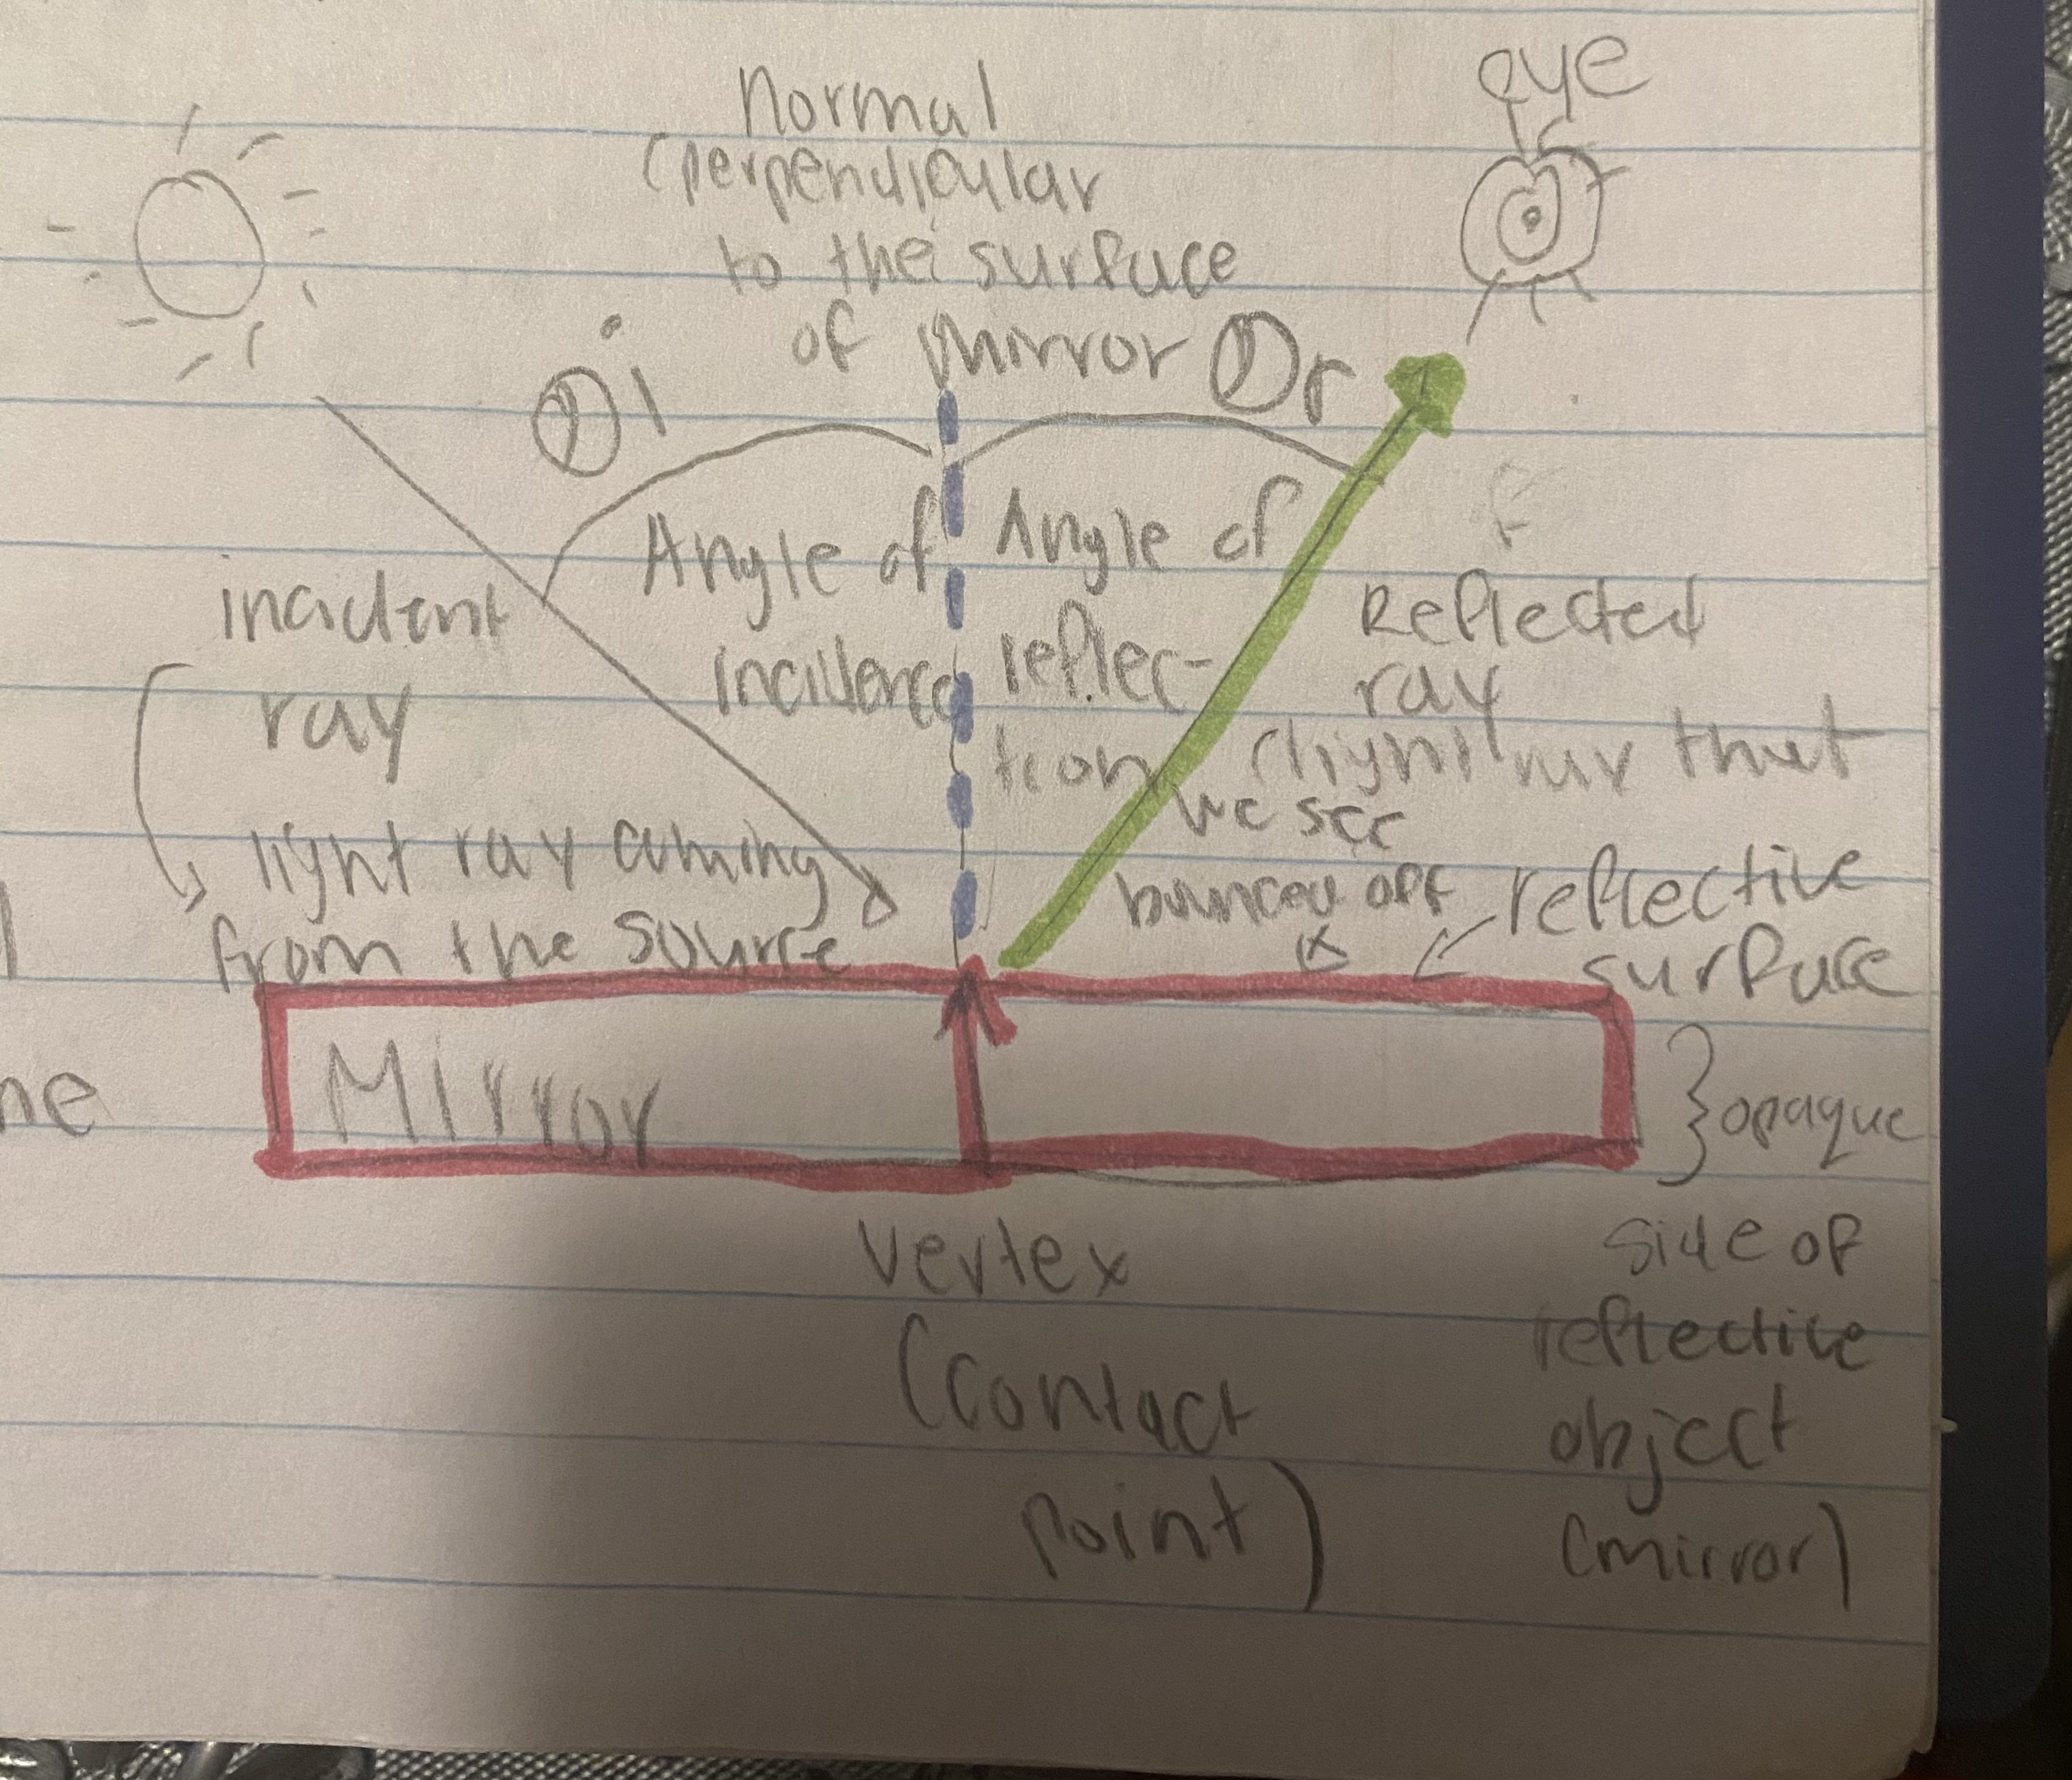 eye
Normal
(perpendicular
to the surface
of mirror
θi
θr
Angle of
incidence
Angle of
reflec-
tion
incident
ray
light ray coming
from the source
Reflected
ray
(light ray that
we see
bounced off
reflective
surface
Mirror
}opaque
ne
Vertex
(contact
point)
side of
reflective
object
(mirror)